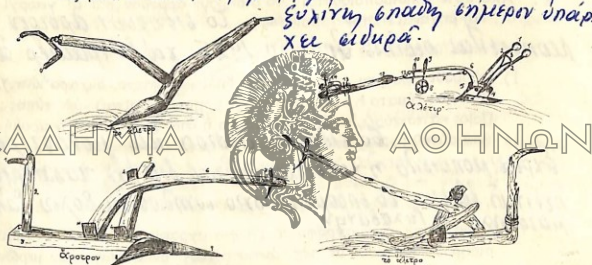 ξυλίνης σπάθη σήμερον ὑπάρ-
χει σιδηρᾶ.
τὸ ἄλετρο
ἀλέτρι
ΑΚΑΔΗΜΙΑ ΑΘΗΝΩΝ
ἄροτρον
τὸ ἄλετρο